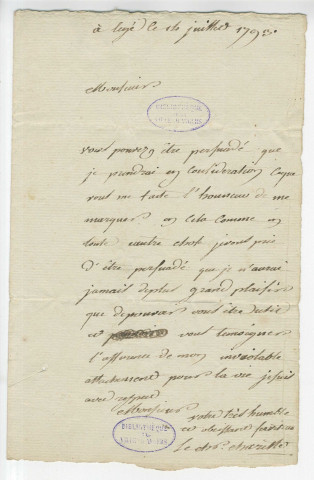 à Legé le 16 juillet 1793.
Monsieur
BIBLIOTHEQUE
vous pouvez être persuadé que
je prendrai en consideration ce que
vous me faite l'honneur de me
marquer en cela comme en
toute autre chose je vous prie
d'être persuadé que je n'aurai
jamais de plus grand plaisir
que de pouvoir vous être utile
et vous temoigner
l'assurence de mon inviolable
attachement pour la vie je suis
avec respect
Monsieur
votre très humble
et obeissant serviteur
BIBLIOTHEQUE
Le ch.r charette